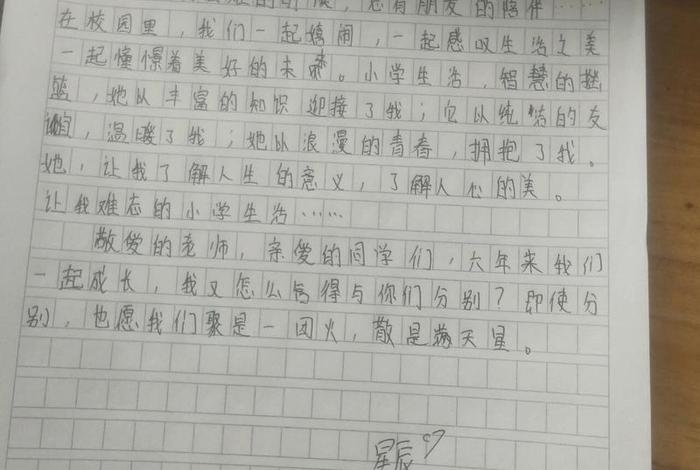 的时候，总有朋友的陪伴……
在校园里，我们一起嬉闹，一起感叹生活之美
一起憧憬着美好的未来。小学生活，智慧的摇
篮，她以丰富的知识迎接了我；它以纯洁的友
谊，温暖了我；她以浪漫的青春，拥抱了我。
她，让我了解人生的意义，了解人心的美。
让我难忘的小学生活……
敬爱的老师，亲爱的同学们，六年来我们
一起成长，我又怎么舍得与你们分别？即使分
别，也愿我们聚是一团火，散是满天星。
星辰